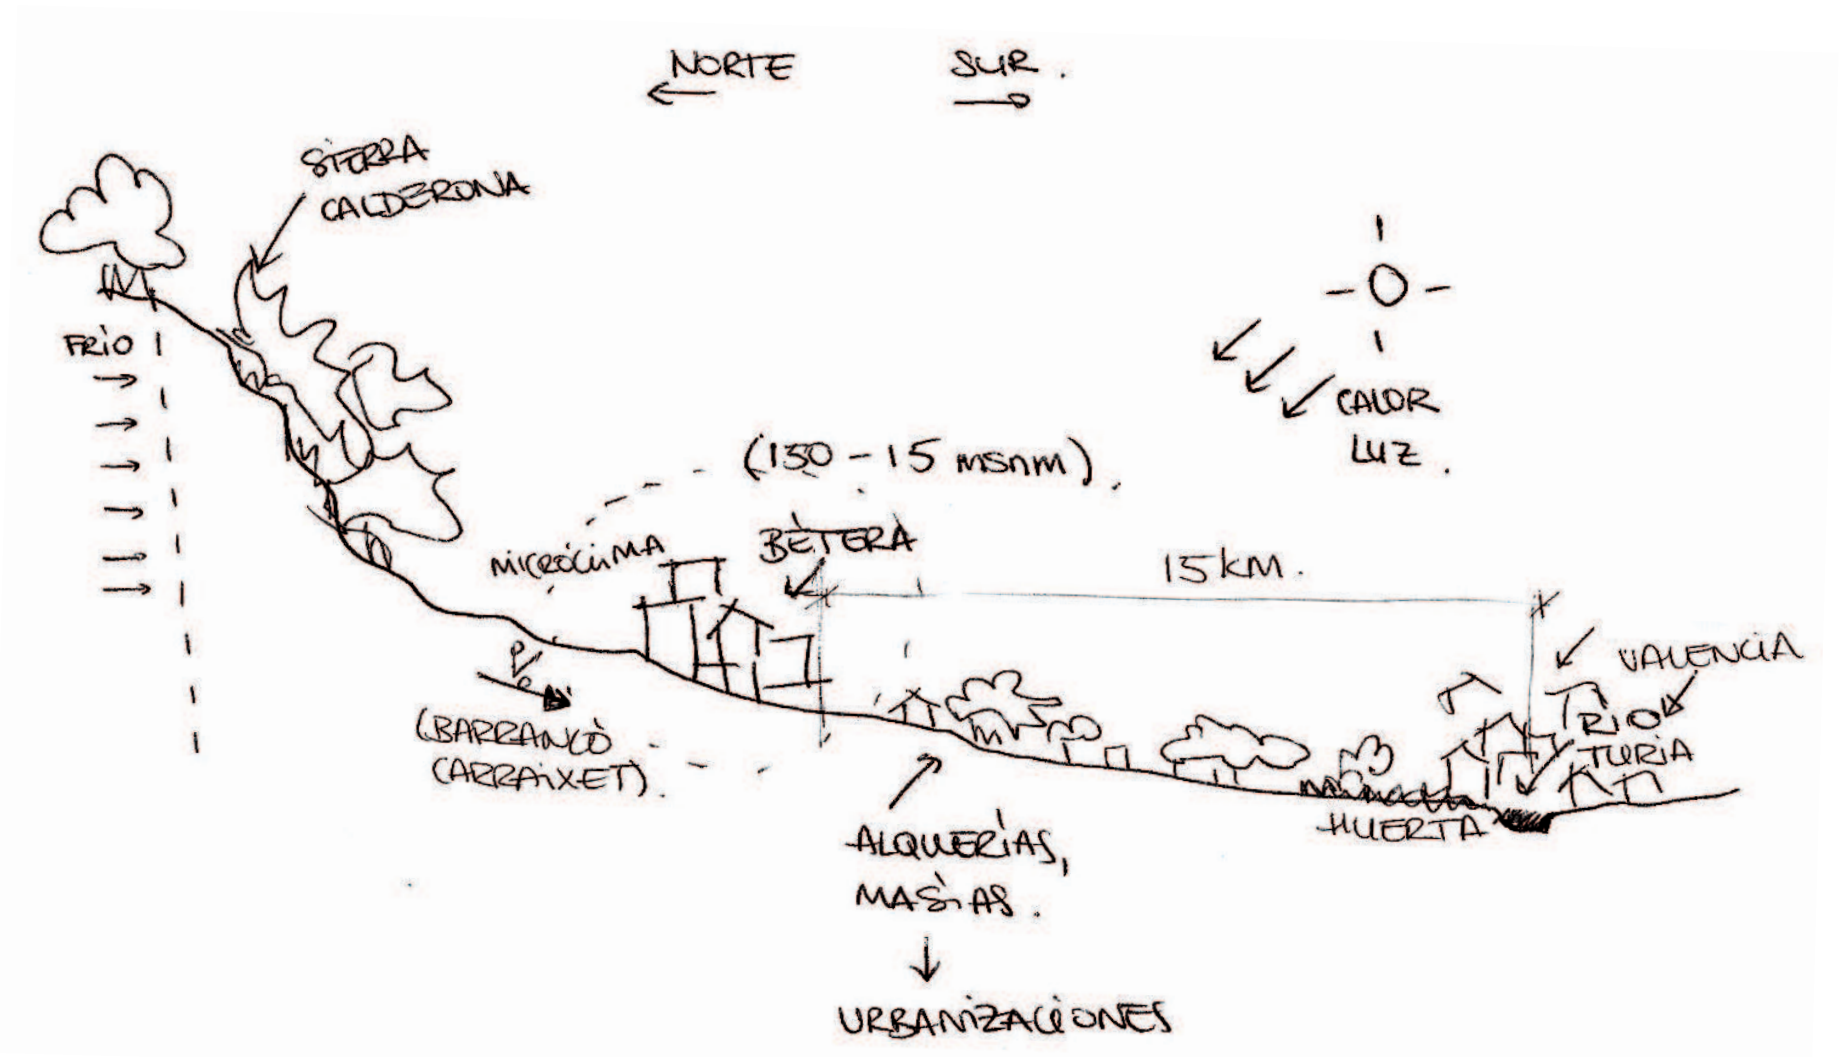 NORTE
SUR.
SIERRA
CALDERONA
FRÍO
CALOR
LUZ.
(150-15 msnm).
MICROCLIMA
BÈTERA
15 KM.
VALENCIA
RIO
TURIA
(BARRANCO
CARRAIXET).
HUERTA
ALQUERÍAS,
MASÍAS.
URBANIZACIONES